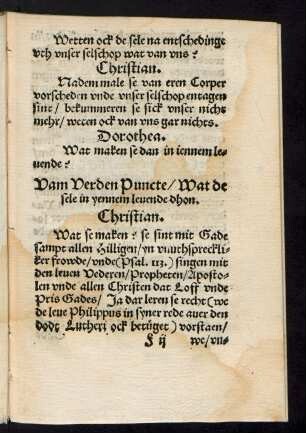 Wetten ock de sele na entschedinge
vth vnser selschop wat van vns?
Christian.
Nadem male se van eren Corper
vorscheden vnde vnser selschop entagen
sint / bekummeren se sick vnser nicht
mehr / weten ock van vns gar nichts.
Dorothea.
Wat maken se dan in iennem le-
uende?
Vam Verden Puncte / Wat de
sele in yennem leuende dhon.
Christian.
Wat se maken? se sint mit Gade
sampt allen Hilligen / yn vnuthspreckli-
ker frowde / vnde (Psal. 113.) singen mit
den leuen Vederen / Propheten / Aposto-
len vnde allen Christen dat Loff vnde
Pris Gades / Ja dar leren se recht (we
de leue Philippus in syner rede auer den
dodt Lutheri ock betüget) vorstaen /
F ij we / vn-